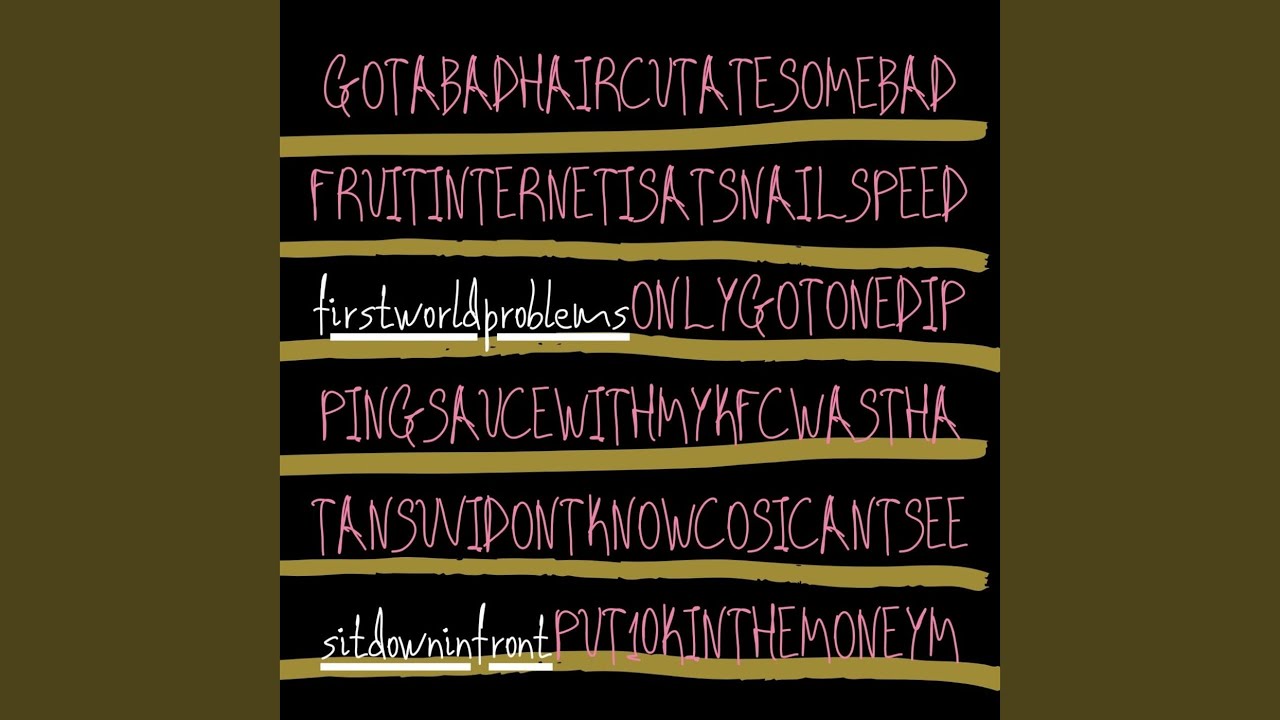 GOTABADHAIRCUTATESOMEBAD
FRUITINTERNETISATSNAILSPEED
firstworldproblemsONLYGOTONEDIP
PINGSAUCEWITHMYKFCWASTHA
TANSUVIDONTKNOWCOSICANTSEE
sitdowninfrontPUT10KINTHEMONEYM